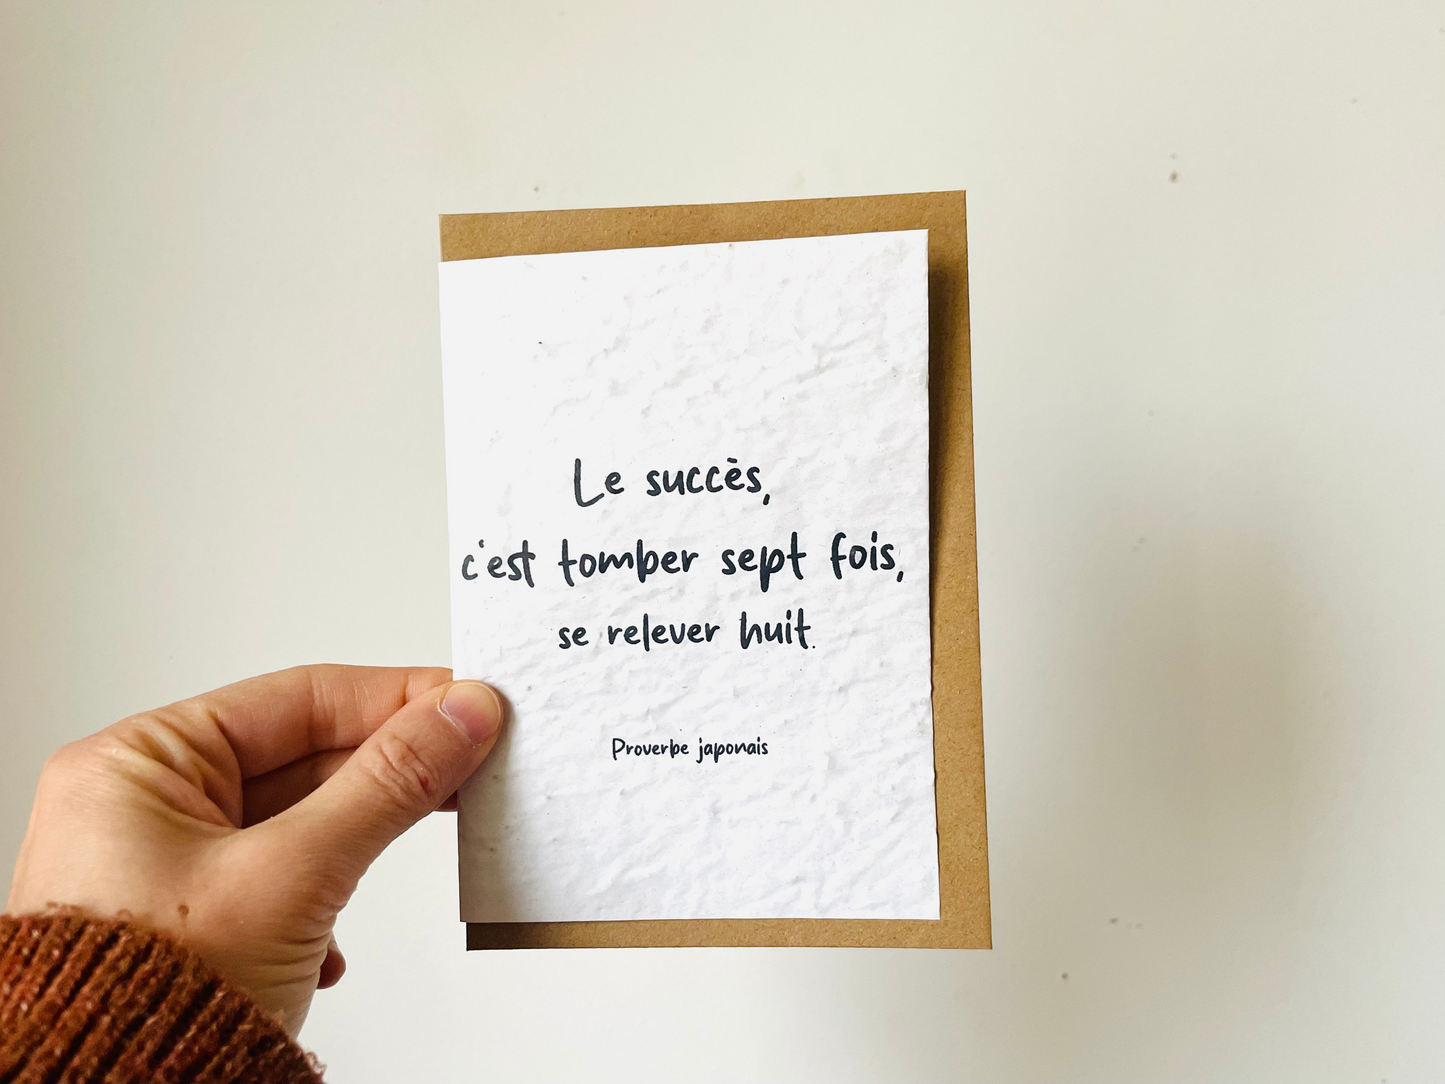 Le succès,
c'est tomber sept fois,
se relever huit.
Proverbe japonais